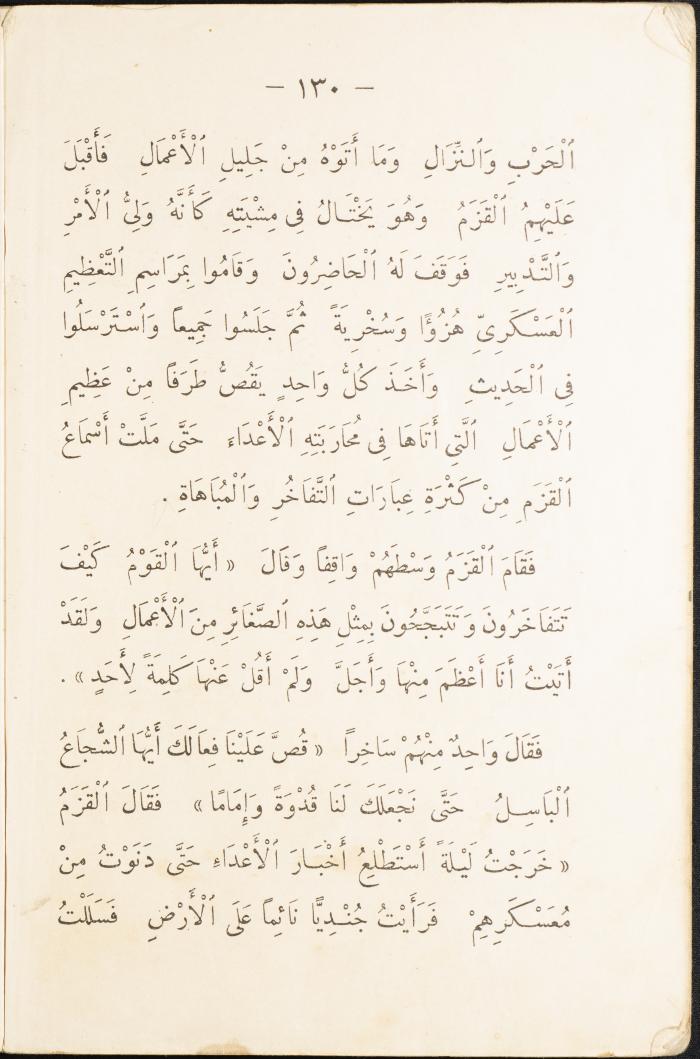 — ١٣٠ —
ٱلْحَرْبِ وَٱلنِّزَالِ وَمَا أَتَوْهُ مِنْ جَلِيلِ ٱلْأَعْمَالِ فَأَقْبَلَ
عَلَيْهِمُ ٱلْقَزَمُ وَهُوَ يَخْتَالُ فِي مِشْيَتِهِ كَأَنَّهُ وَلِيُّ ٱلْأَمْرِ
وَٱلتَّدْبِيرِ فَوَقَفَ لَهُ ٱلْحَاضِرُونَ وَقَامُوا بِمَرَاسِمِ ٱلتَّعْظِيمِ
ٱلْعَسْكَرِيِّ هُزُؤًا وَسُخْرِيَةً ثُمَّ جَلَسُوا جَمِيعاً وَٱسْتَرْسَلُوا
فِي ٱلْحَدِيثِ وَأَخَذَ كُلُّ وَاحِدٍ يَقُصُّ طَرَفاً مِنْ عَظِيمِ
ٱلْأَعْمَالِ ٱلَّتِي أَتَاهَا فِي مُحَارَبَتِهِ ٱلْأَعْدَاءَ حَتَّى مَلَّتْ أَسْمَاعُ
ٱلْقَزَمِ مِنْ كَثْرَةِ عِبَارَاتِ ٱلتَّفَاخُرِ وَٱلْمُبَاهَاةِ .
فَقَامَ ٱلْقَزَمُ وَسْطَهُمْ وَاقِفاً وَقَالَ « أَيُّهَا ٱلْقَوْمُ كَيْفَ
تَتَفَاخَرُونَ وَتَتَبَجَّحُونَ بِمِثْلِ هَذِهِ ٱلصَّغَائِرِ مِنَ ٱلْأَعْمَالِ وَلَقَدْ
أَتَيْتُ أَنَا أَعْظَمَ مِنْهَا وَأَجَلَّ وَلَمْ أَقُلْ عَنْهَا كَلِمَةً لِأَحَدٍ » .
فَقَالَ وَاحِدٌ مِنْهُمْ سَاخِراً « قُصَّ عَلَيْنَا فِعَالَكَ أَيُّهَا ٱلشُّجَاعُ
ٱلْبَاسِلُ حَتَّى نَجْعَلَكَ لَنَا قُدْوَةً وَإِمَامًا » فَقَالَ ٱلْقَزَمُ
« خَرَجْتُ لَيْلَةً أَسْتَطْلِعُ أَخْبَارَ ٱلْأَعْدَاءِ حَتَّى دَنَوْتُ مِنْ
مُعَسْكَرِهِمْ فَرَأَيْتُ جُنْدِيًّا نَائِماً عَلَى ٱلْأَرْضِ فَسَلَلْتُ